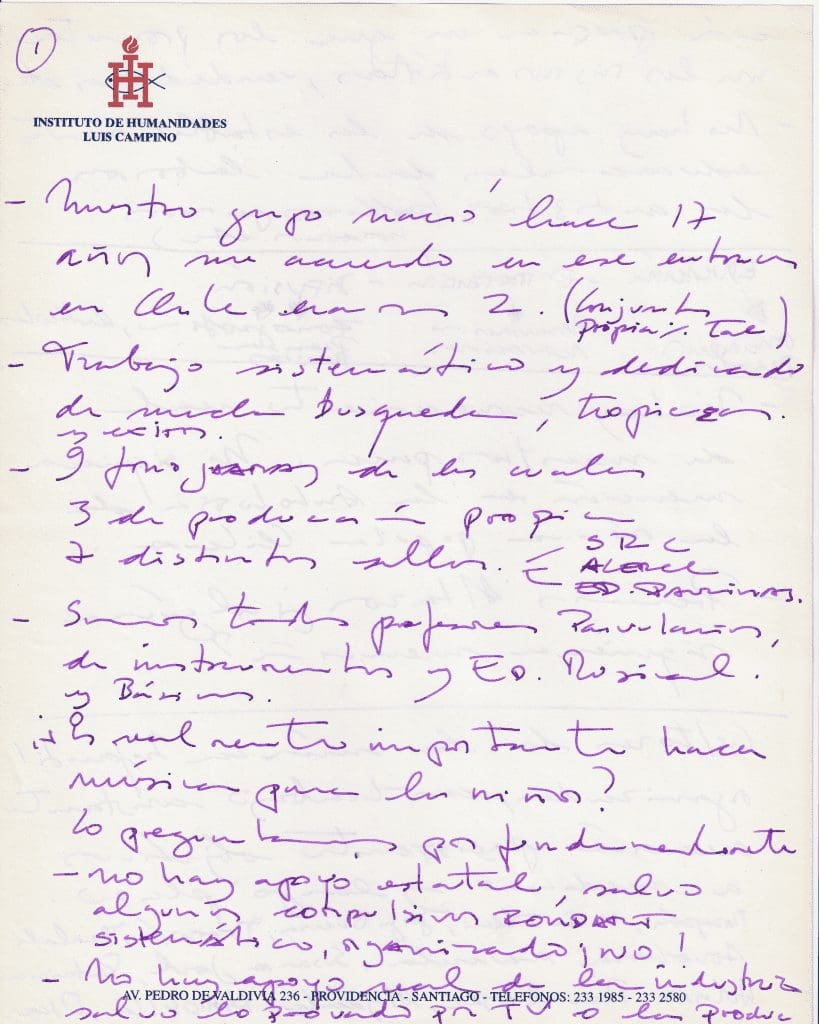 1
INSTITUTO DE HUMANIDADES
LUIS CAMPINO
- Nuestro grupo nació hace 17
años me acuerdo en ese entonces
en Chile eramos 2. (Conjunto
Propia Tae)
- Trabajo sistemático y dedicado
de mucha busqueda, tropiezos.
y exitos.
- 9 fonogramas de los cuales
3 de producción propia
7 distintos sellos. SRC
ALERCE
ED. PAULINAS.
- Somos todos profesores Parvularios,
de instrumentos y ED. Musical.
y Básicos.
¿Es realmente importante hacer
música para los niños?
Lo preguntamos por fundamentalmente
- no hay apoyo estatal, salvo
algunos compulsivos
sistemático, organizado ¡NO!
- No hay apoyo real de la industria
AV. PEDRO DE VALDIVIA 236 - PROVIDENCIA - SANTIAGO - TELEFONOS: 233 1985 - 233 2580
salvo lo probado por TV o la produc